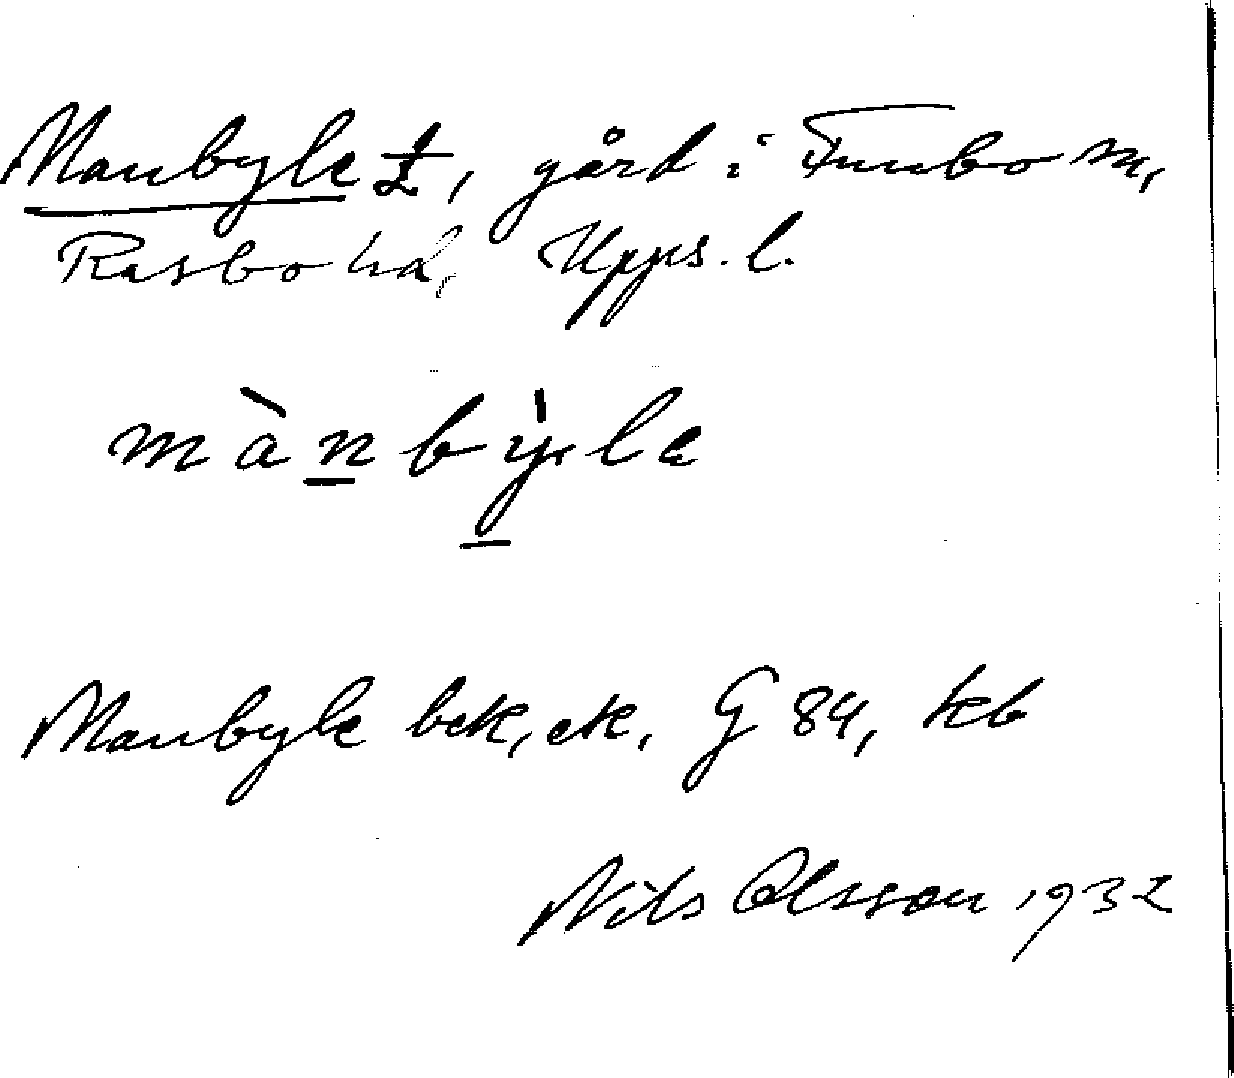 Manbyle £, gård i Funbo sn,
Rasbo hd, Upps. l.
mànbỳle
Manbyle bek, ek, G 84, kb
Nils Olsson 1932